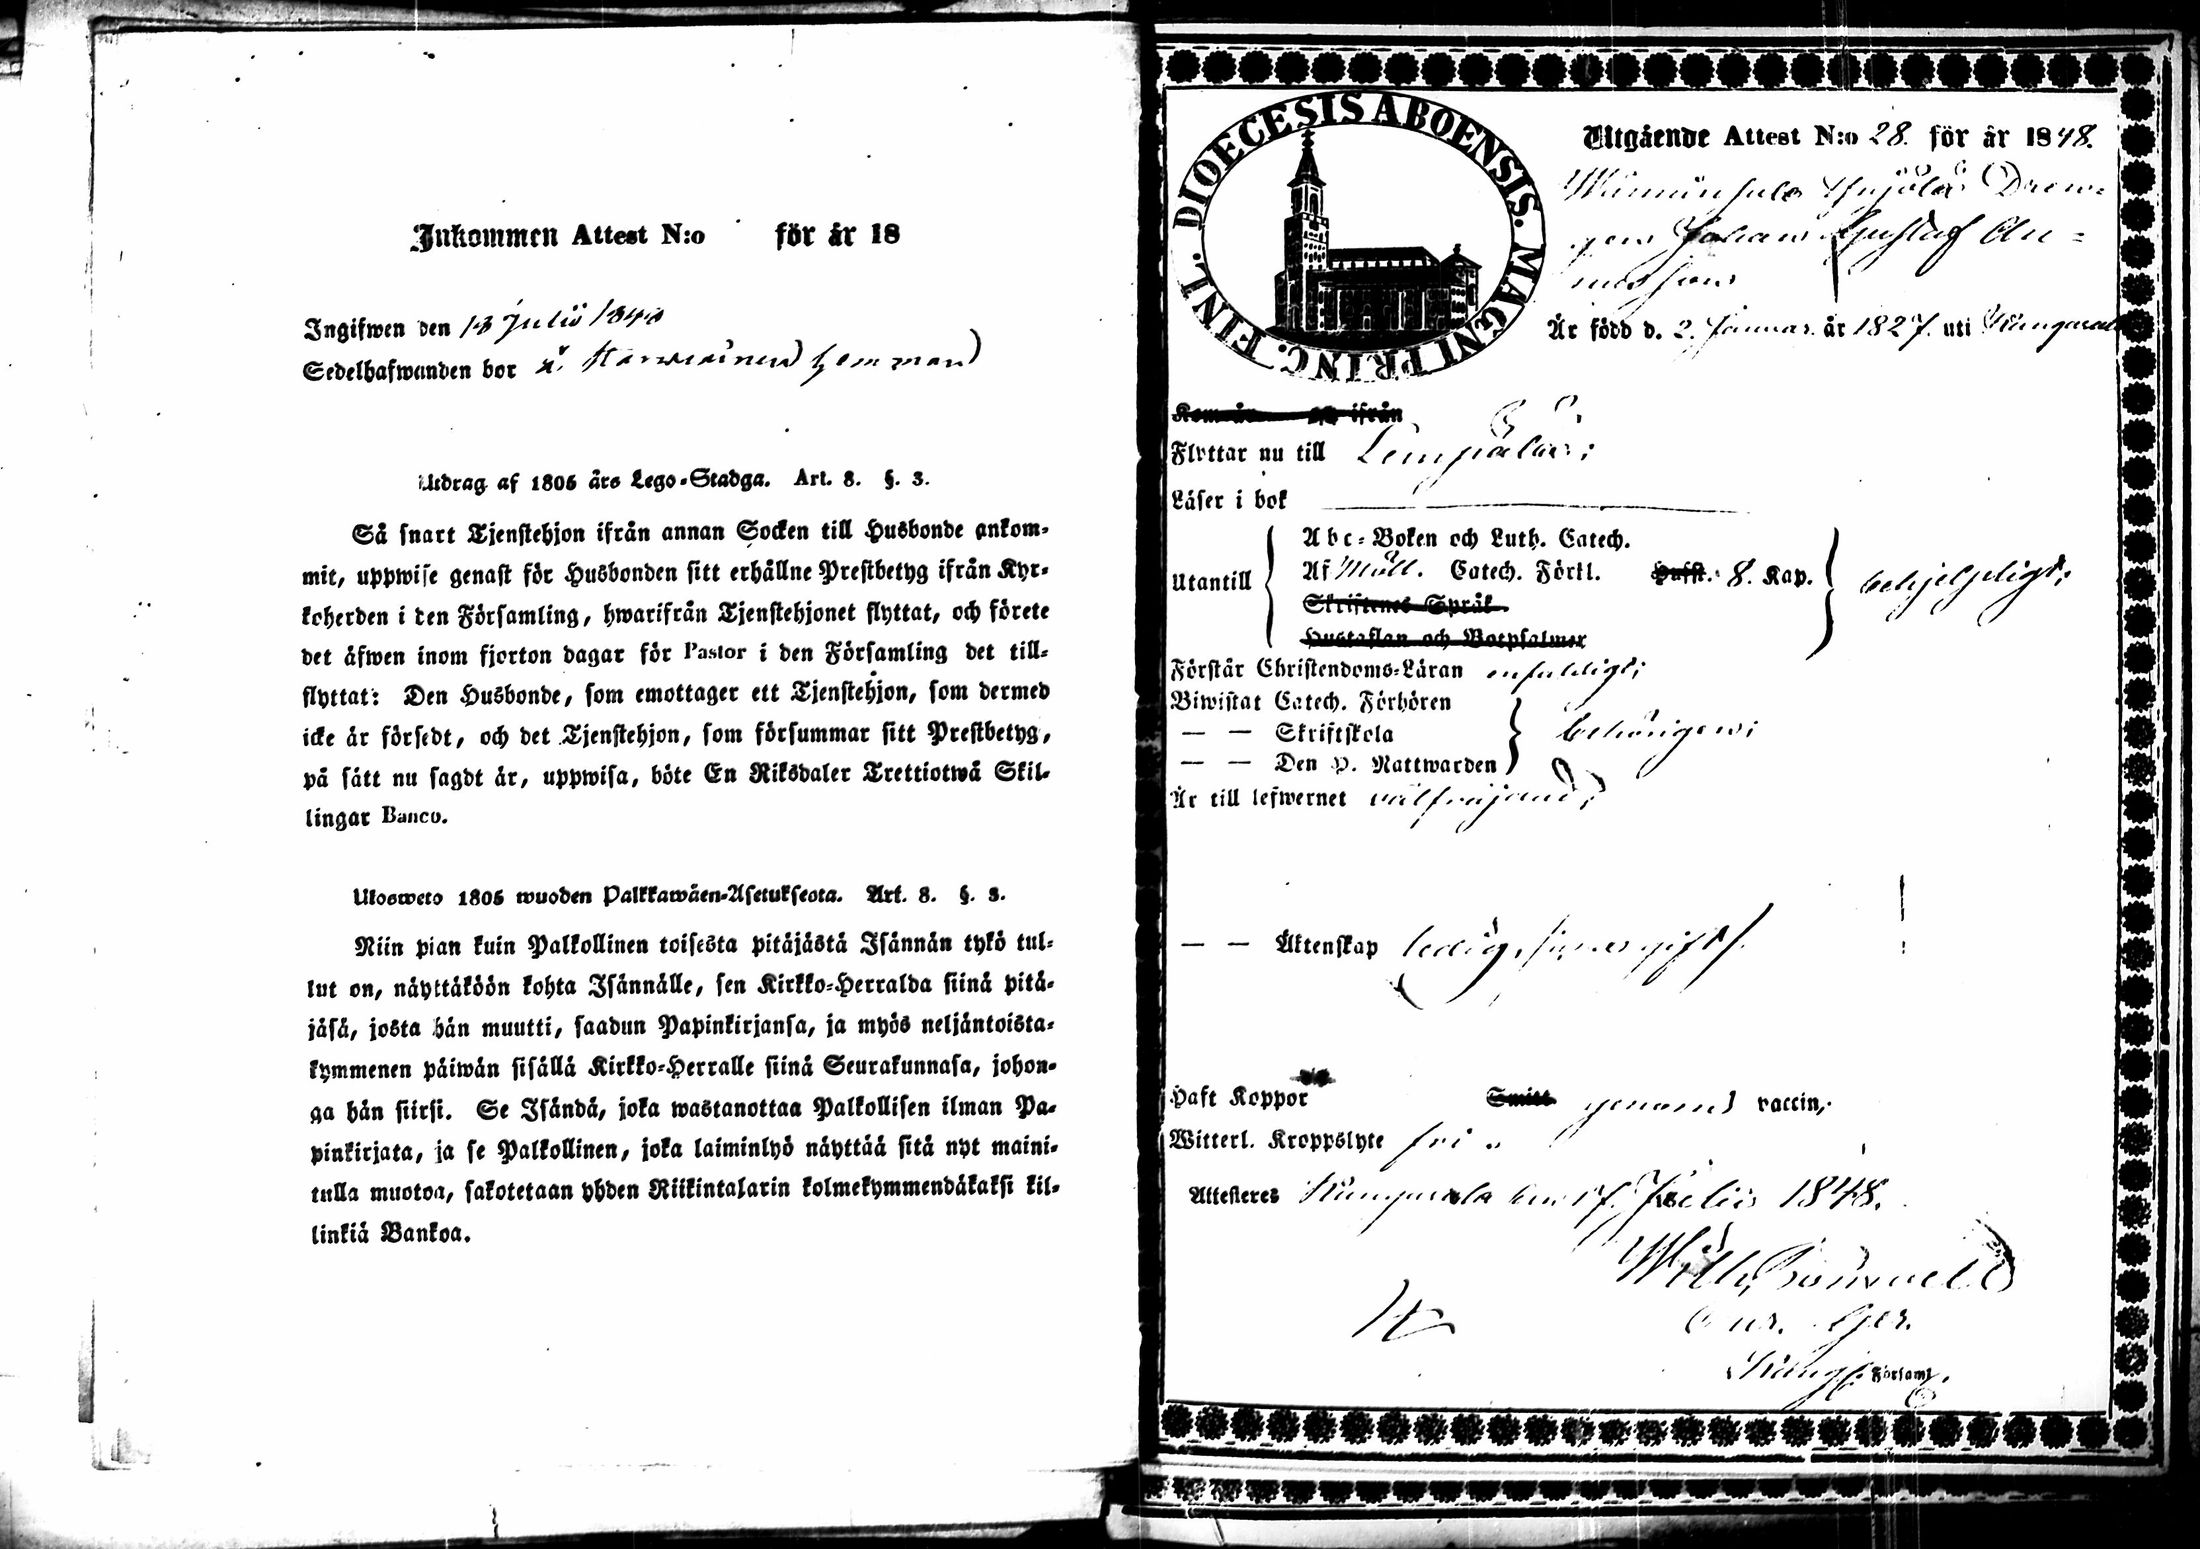 Inkommen Attest N:o för år 18
Ingifwen den 13 Julii 1848
Sedelhafwanden bor hemman
Utdrag af 1805 års Lego-Stadga. Art. 8. §. 3.
Så snart Tjenstehjon ifrån annan Socken till Husbonde ankom-
mit, uppwise genast för Husbonden sitt erhållne Prestbetyg ifrån Kyr-
koherden i den Församling, hwarifrån Tjenstehjonet flyttat, och förete
det äfwen inom fjorton dagar för Pastor i den Församling det till-
flyttat: Den Husbonde, som emottager ett Tjenstehjon, som dermed
icke är försedt, och det Tjenstehjon, som försummar sitt Prestbetyg,
på sätt nu sagdt är, uppwisa, böte En Riksdaler Trettiotwå Skil-
lingar Banco.
Ulosweto 1805 wuoden Palkkawäen-Asetuksesta. Art. 8. §. 3.
Niin pian kuin Palkollinen toisesta pitäjästä Isännän tykö tul-
lut on, näyttäköön kohta Isännälle, sen Kirkko-Herralda siinä pitä-
jäsä, josta hän muutti, saadun Papinkirjansa, ja myös neljäntoista-
kymmenen päiwän sisällä Kirkko-Herralle siinä Seurakunnasa, johon-
ga hän siirsi. Se Isändä, joka wastanottaa Palkollisen ilman Pa-
pinkirjata, ja se Palkollinen, joka laiminlyö näyttää sitä nyt maini-
tulla muotoa, sakotetaan yhden Riikintalarin kolmekymmendäkaksi kil-
linkiä Bankoa.
DIOECESIS ABOENSIS. MAGNI PRINC. FINL.
Utgående Attest N:o 28. för år 1848.
Dren-
gen Johan Gustaf
Är född d. 2. Januar. år 1827. uti Kangasala
Kom år och ifrån
Flyttar nu till Lempäälä;
Läser i bok
Utantill
Abc-Boken och Luth. Catech.
Af Möll. Catech. Förkl. Hufst. 8. Kap.
behjelpligt;
Skriftenes Språk
Hustaflan och Botpsalmer
Förstår Christendoms-Läran enfaldigt;
Biwistat Catech. Förhören
— — Skriftskola behörigen;
— — Den H. Nattwarden
Är till lefwernet välfrejdad;
— — Äktenskap ledig,
Haft Koppor Smitt genom vaccin,
Witterl. Kroppslyte fri.
Attesteres Kangasala den 17. Julii 1848.
Församl.